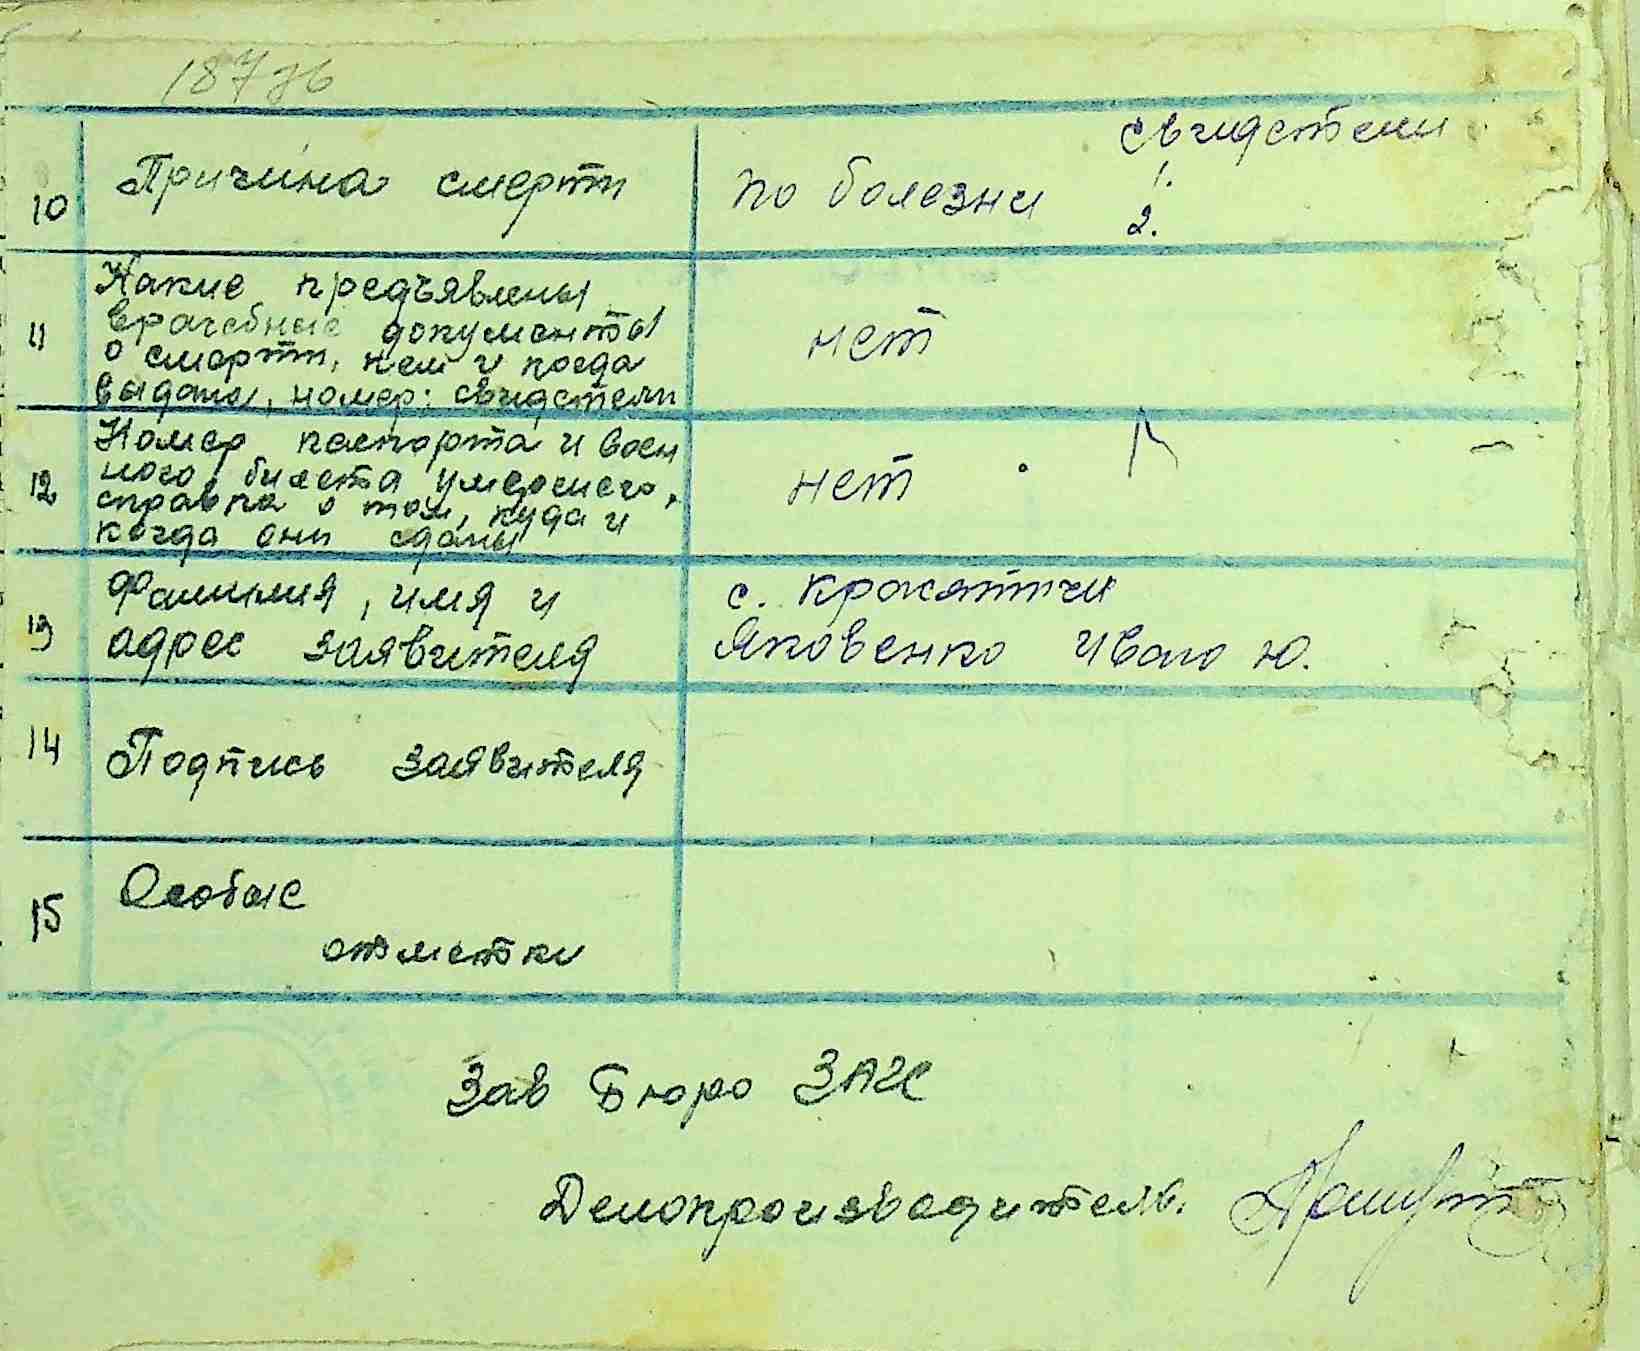 187 зв
свидетели
10 Причина смерти по болезни 1.
2.
Какие предъявлены
11 врачебные документы нет
о смерти, кем и когда
выданы, номер: свидетели
Номер паспорта и воен
12 ного билета умершего, нет
справка о том, куда и
когда они сданы
Фамилия, имя и с. Кракятичи
13 адрес заявителя Яковенко Ивана Ю.
14 Подпись заявителя
15 Особые
отметки
Зав Бюро ЗАГС
Делопроизводитель.